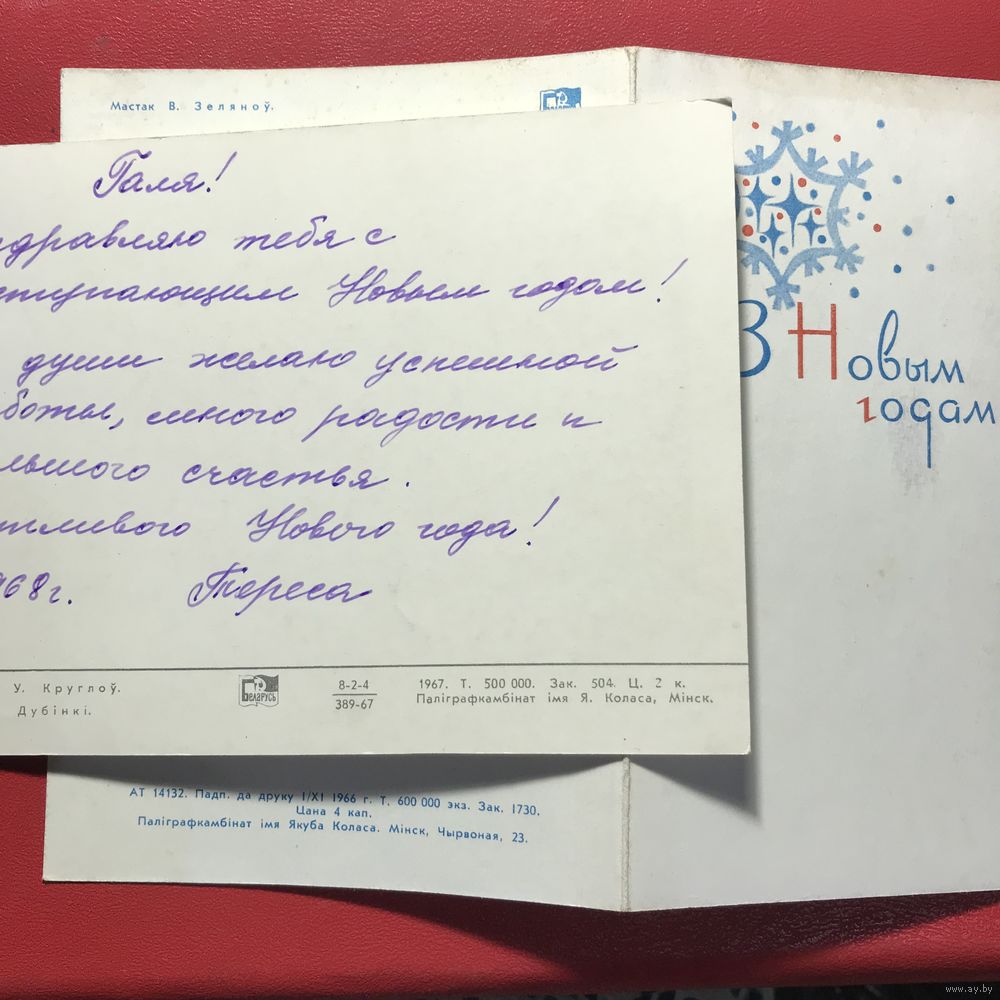 Мастак В. Зеляноў.
Галя!
здравляю тебя с
ступающим Новым годом!
души желаю успешной
боты, много радости и
льшого счастья.
тливого Нового года!
968г. Тереса
У. Круглоў.
Дубінкі.
Беларусь
8-2-4
389-67
1967. Т. 500 000. Зак. 504. Ц. 2 к.
Паліграфкамбінат імя Я. Коласа, Мінск.
З Новым
годам
АТ 14132. Падп. да друку 1/XI 1966 г. Т. 600 000 экз. Зак. 1730.
Цана 4 кап.
Паліграфкамбінат імя Якуба Коласа. Мінск, Чырвоная, 23.
www.ay.by